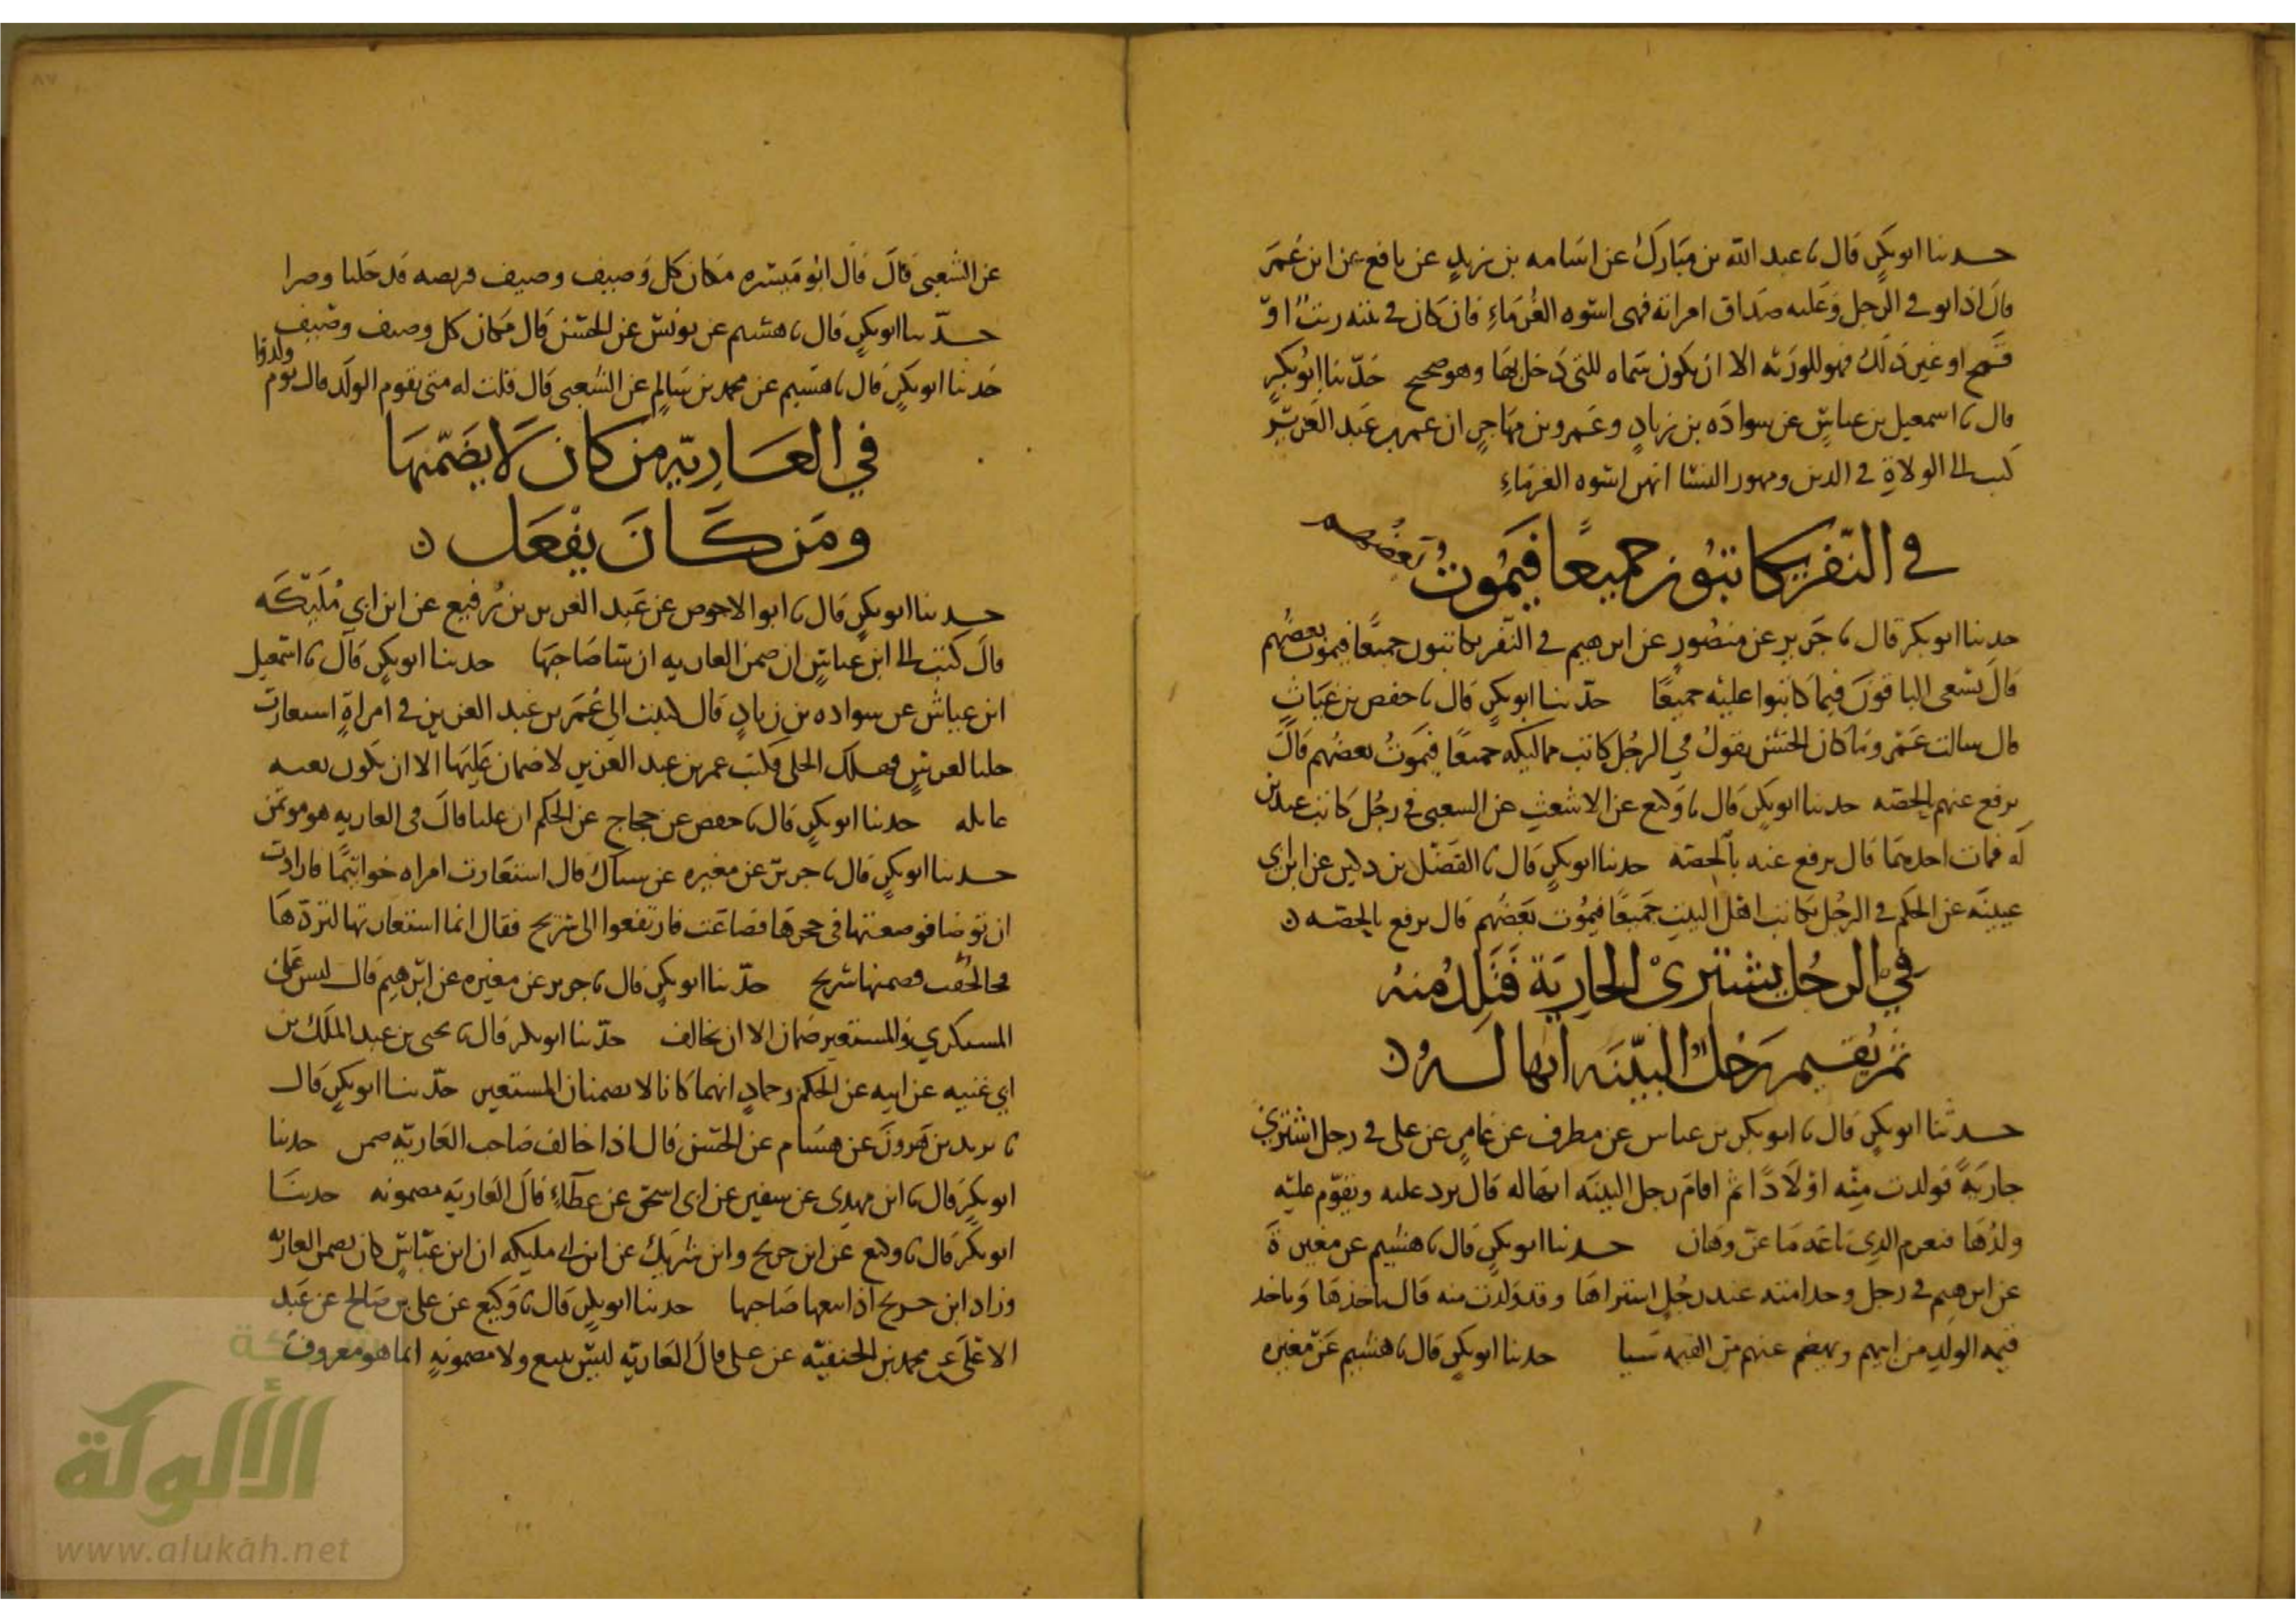 حدثنا ابو بكر قال نا عبد الله بن مبارك عن اسامه بن زيد عن نافع عن ابن عمر
قال اذا توفي الرجل وعليه صداق امراته فهي اسوه الغرماء فان كان في بيته زيت او
قمح او غير ذلك فهو للورثه الا ان يكون سماه للتي دخل بها وهو صحيح حدثنا ابو بكر
قال نا اسمعيل بن عياش عن سواده بن زياد وعمرو بن مهاجر ان عمر بن عبد العزيز
كتب الى الولاة في الدين ومهور النسا انهن اسوه الغرماء
في النفر يكاتبون جميعا فيموت بعضهم
حدثنا ابو بكر قال نا جرير عن منصور عن ابرهيم في النفر يكاتبون جميعا فيموت بعضهم
قال يسعى الباقون فيما كاتبوا عليه جميعا حدثنا ابو بكر قال نا حفص بن غياث
قال سالت عمرو ما كان الحسن يقول في الرجل كاتب مماليكه جميعا فيموت بعضهم قال
يرفع عنهم بالحصه حدثنا ابو بكر قال نا وكيع عن الاشعث عن الشعبي في رجل كاتب عبدين
له فمات احدهما قال يرفع عنه بالحصه حدثنا ابو بكر قال نا الفضل بن دكين عن ابن ابي
عيينه عن الحكم في الرجل يكاتب اهل البيت جميعا فيموت بعضهم قال يرفع بالحصه
في الرجل يشتري الجارية فتلد منه
ثم يقيم رجل البينه انها له
حدثنا ابو بكر قال نا ابو بكر بن عياش عن مطرف عن عامر عن علي في رجل اشتري
جارية فولدت منه اولادا ثم اقام رجل البينه انها له قال ترد عليه ويقوم عليه
ولدها فيغرم الذي باعه ما عز وهان حدثنا ابو بكر قال نا هشيم عن مغيرة
عن ابرهيم في رجل وجد امته عند رجل اشتراها وقد ولدت منه قال ياخذها وياخذ
قيمه الولد من ابيهم ويهضم عنهم من القيمه شيا حدثنا ابو بكر قال نا هشيم عن مغيره
عن الشعبي قال قال ابو ميسره مكان كل وصيف وصيف فريضه قد حلبا وصرا
حدثنا ابو بكر قال نا هشيم عن يونس عن الحسن قال مكان كل وصيف وصيف
حدثنا ابو بكر قال نا هشيم عن محمد بن سالم عن الشعبي قال قلت له متى يقوم الولد قال يوم ولدوا
في العارية من كان لا يضمنها
ومن كان يفعل
حدثنا ابو بكر قال نا ابو الاحوص عن عبد العزيز بن رفيع عن ابن ابي مليكه
قال كتبت الى ابن عباس ان ضمن العاريه ان شا صاحبها حدثنا ابو بكر قال نا اسمعيل
ابن عياش عن سواده بن زياد قال كتبت الى عمر بن عبد العزيز في امراة استعارت
حليا لعرس فهلك الحلي فكتب عمر بن عبد العزيز لا ضمان عليها الا ان تكون بغته
غايله حدثنا ابو بكر قال نا حفص عن حجاج عن الحكم ان عليا قال في العاريه هو موتمن
حدثنا ابو بكر قال نا جرير عن مغيره عن سماك قال استعارت امراه خواتيما فارادت
ان توضا فوضعتها في حجرها فضاعت فارتفعوا الى شريح فقال انما استعارتها لتردها
فخالفت فضمنها شريح حدثنا ابو بكر قال نا جرير عن مغيره عن ابرهيم قال ليس على
المستكري والمستعير ضمان الا ان يخالف حدثنا ابو بكر قال نا يحيى بن عبد الملك بن
ابي غنيه عن ابيه عن الحكم وحماد انهما كانا لا يضمنان المستعير حدثنا ابو بكر قال
نا يزيد بن هرون عن هشام عن الحسن قال اذا خالف صاحب العاريه ضمن حدثنا
ابو بكر قال نا ابن مهدي عن سفين عن ابي اسحق عن عطاء قال العاريه مضمونه حدثنا
ابو بكر قال نا وكيع عن ابن جريج وابن شريك عن ابن ابي مليكه ان ابن عباس كان يضمن العاريه
وزاد ابن جريج اذا اتبعها صاحبها حدثنا ابو بكر قال نا وكيع عن علي بن صالح عن عبد
الاعلى عن محمد بن الحنفيه عن علي قال العاريه ليس ببيع ولا مضمونه انما هو معروف
الألوكة
www.alukah.net